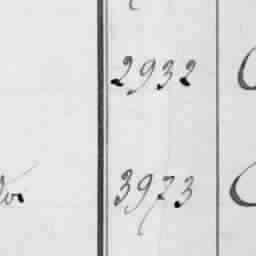 2932
3973